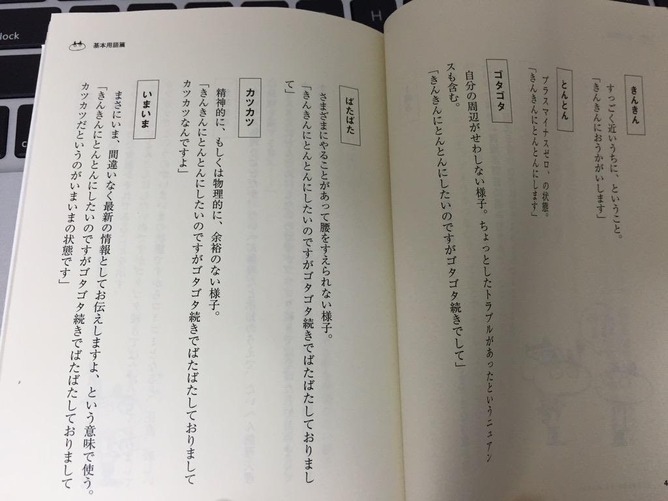 きんきん
すっごく近いうちに、ということ。
「きんきんにおうかがいします」
とんとん
プラスマイナスゼロ、の状態。
「きんきんにとんとんにします」
ゴタゴタ
自分の周辺がせわしない様子。ちょっとしたトラブルがあったというニュアン
スも含む。
「きんきんにとんとんにしたいのですがゴタゴタ続きでして」
ばたばた
さまざまにやることがあって腰をすえられない様子。
「きんきんにとんとんにしたいのですがゴタゴタ続きでばたばたしておりまし
て」
カツカツ
精神的に、もしくは物理的に、余裕のない様子。
「きんきんにとんとんにしたいのですがゴタゴタ続きでばたばたしておりまして
カツカツなんですよ」
いまいま
まさにいま、間違いなく最新の情報としてお伝えしますよ、という意味で使う。
「きんきんにとんとんにしたいのですがゴタゴタ続きでばたばたしておりまして
カツカツだというのがいまいまの状態です」
基本用語編
lock